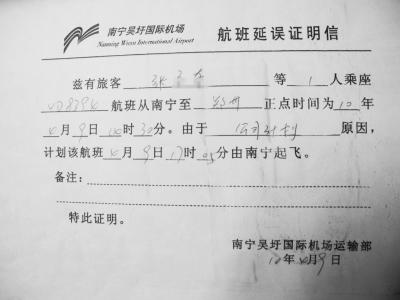 南宁吴圩国际机场 航班延误证明信
Nanning Wuxu International Airport
兹有旅客 张 等 1 人乘座
VD8394 航班从南宁至 郑州 正点时间为 10 年
4 月 9 日 时 30 分。由于 公司计划 原因,
计划该航班 4 月 9 日 17 时 05 分由南宁起飞。
备注:
特此证明。
南宁吴圩国际机场运输部
10 年 4 月 9 日